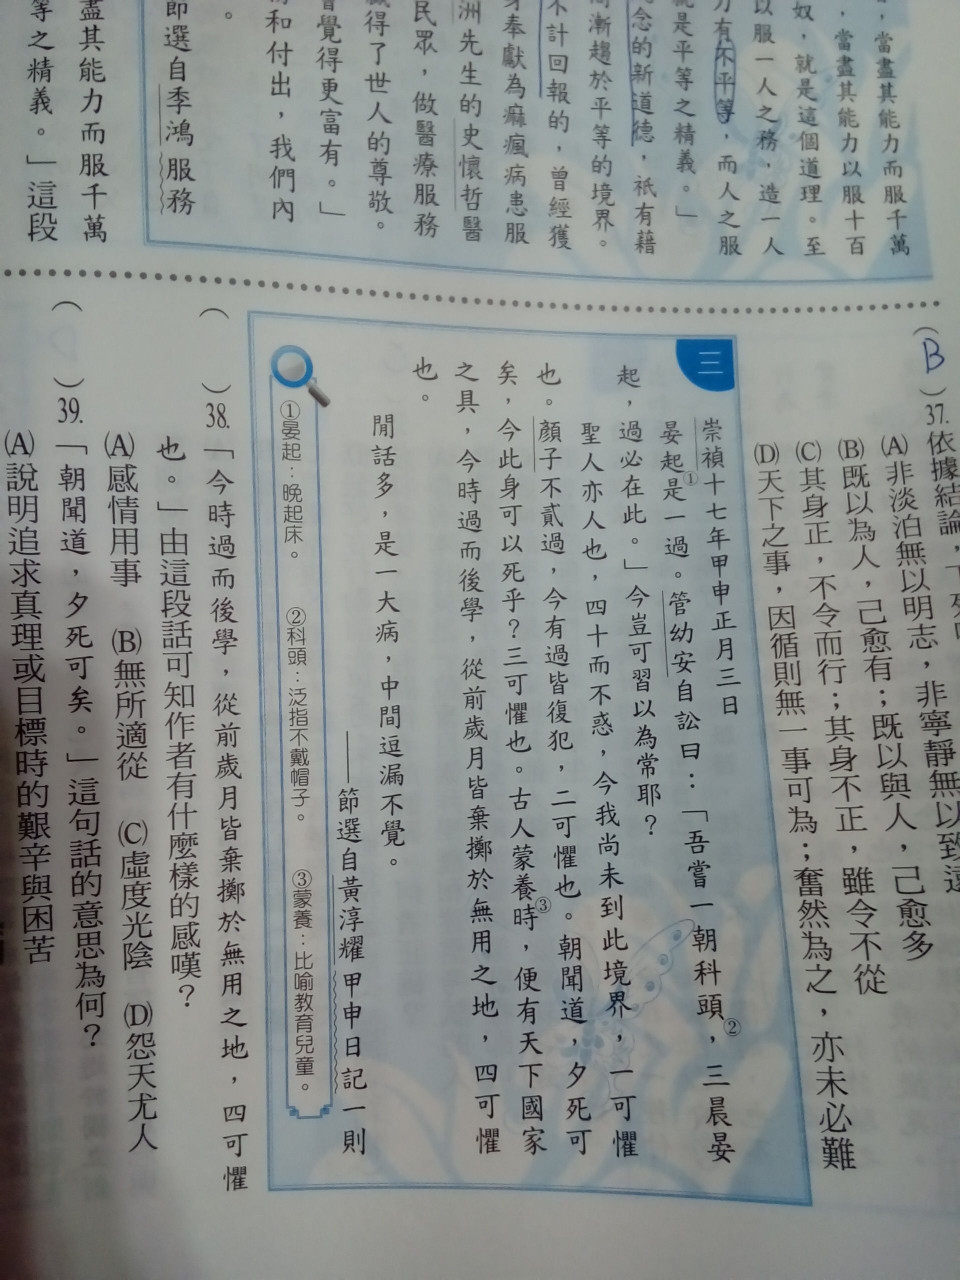 ，當盡其能力而服千萬
，當盡其能力以服十百
奴，就是這個道理。至
以服一人之務，造一人
力有不平等，而人之服
念的新道德，祇有藉
就是平等之精義。」
漸趨於平等的境界。
不計回報的，曾經獲
身奉獻為痲瘋病患服
洲先生的史懷哲醫
民眾，做醫療服務
贏得了世人的尊敬。
覺得更富有。」
和付出，我們內
。
節選自季鴻服務
盡其能力而服千萬
等之精義。」這段
(B)37.依據結論，
(A)非淡泊無以明志，非寧靜無以致遠
(B)既以為人，己愈有；既以與人，己愈多
(C)其身正，不令而行；其身不正，雖令不從
(D)天下之事，因循則無一事可為；奮然為之，亦未必難
三
崇禎十七年甲申正月三日
晏起①是一過。管幼安自訟曰：「吾嘗一朝科頭②，三晨晏
起，過必在此。」今豈可習以為常耶？
聖人亦人也，四十而不惑，今我尚未到此境界，一可懼
也。顏子不貳過，今有過皆復犯，二可懼也。朝聞道，夕死可
矣，今此身可以死乎？三可懼也。古人蒙養③時，便有天下國家
之具，今時過而後學，從前歲月皆棄擲於無用之地，四可懼
也。
閒話多，是一大病，中間逗漏不覺。
——節選自黃淳耀甲申日記一則
①晏起：晚起床。 ②科頭：泛指不戴帽子。 ③蒙養：比喻教育兒童。
( )38.「今時過而後學，從前歲月皆棄擲於無用之地，四可懼
也。」由這段話可知作者有什麼樣的感嘆？
(A)感情用事 (B)無所適從 (C)虛度光陰 (D)怨天尤人
( )39.「朝聞道，夕死可矣。」這句話的意思為何？
(A)說明追求真理或目標時的艱辛與困苦